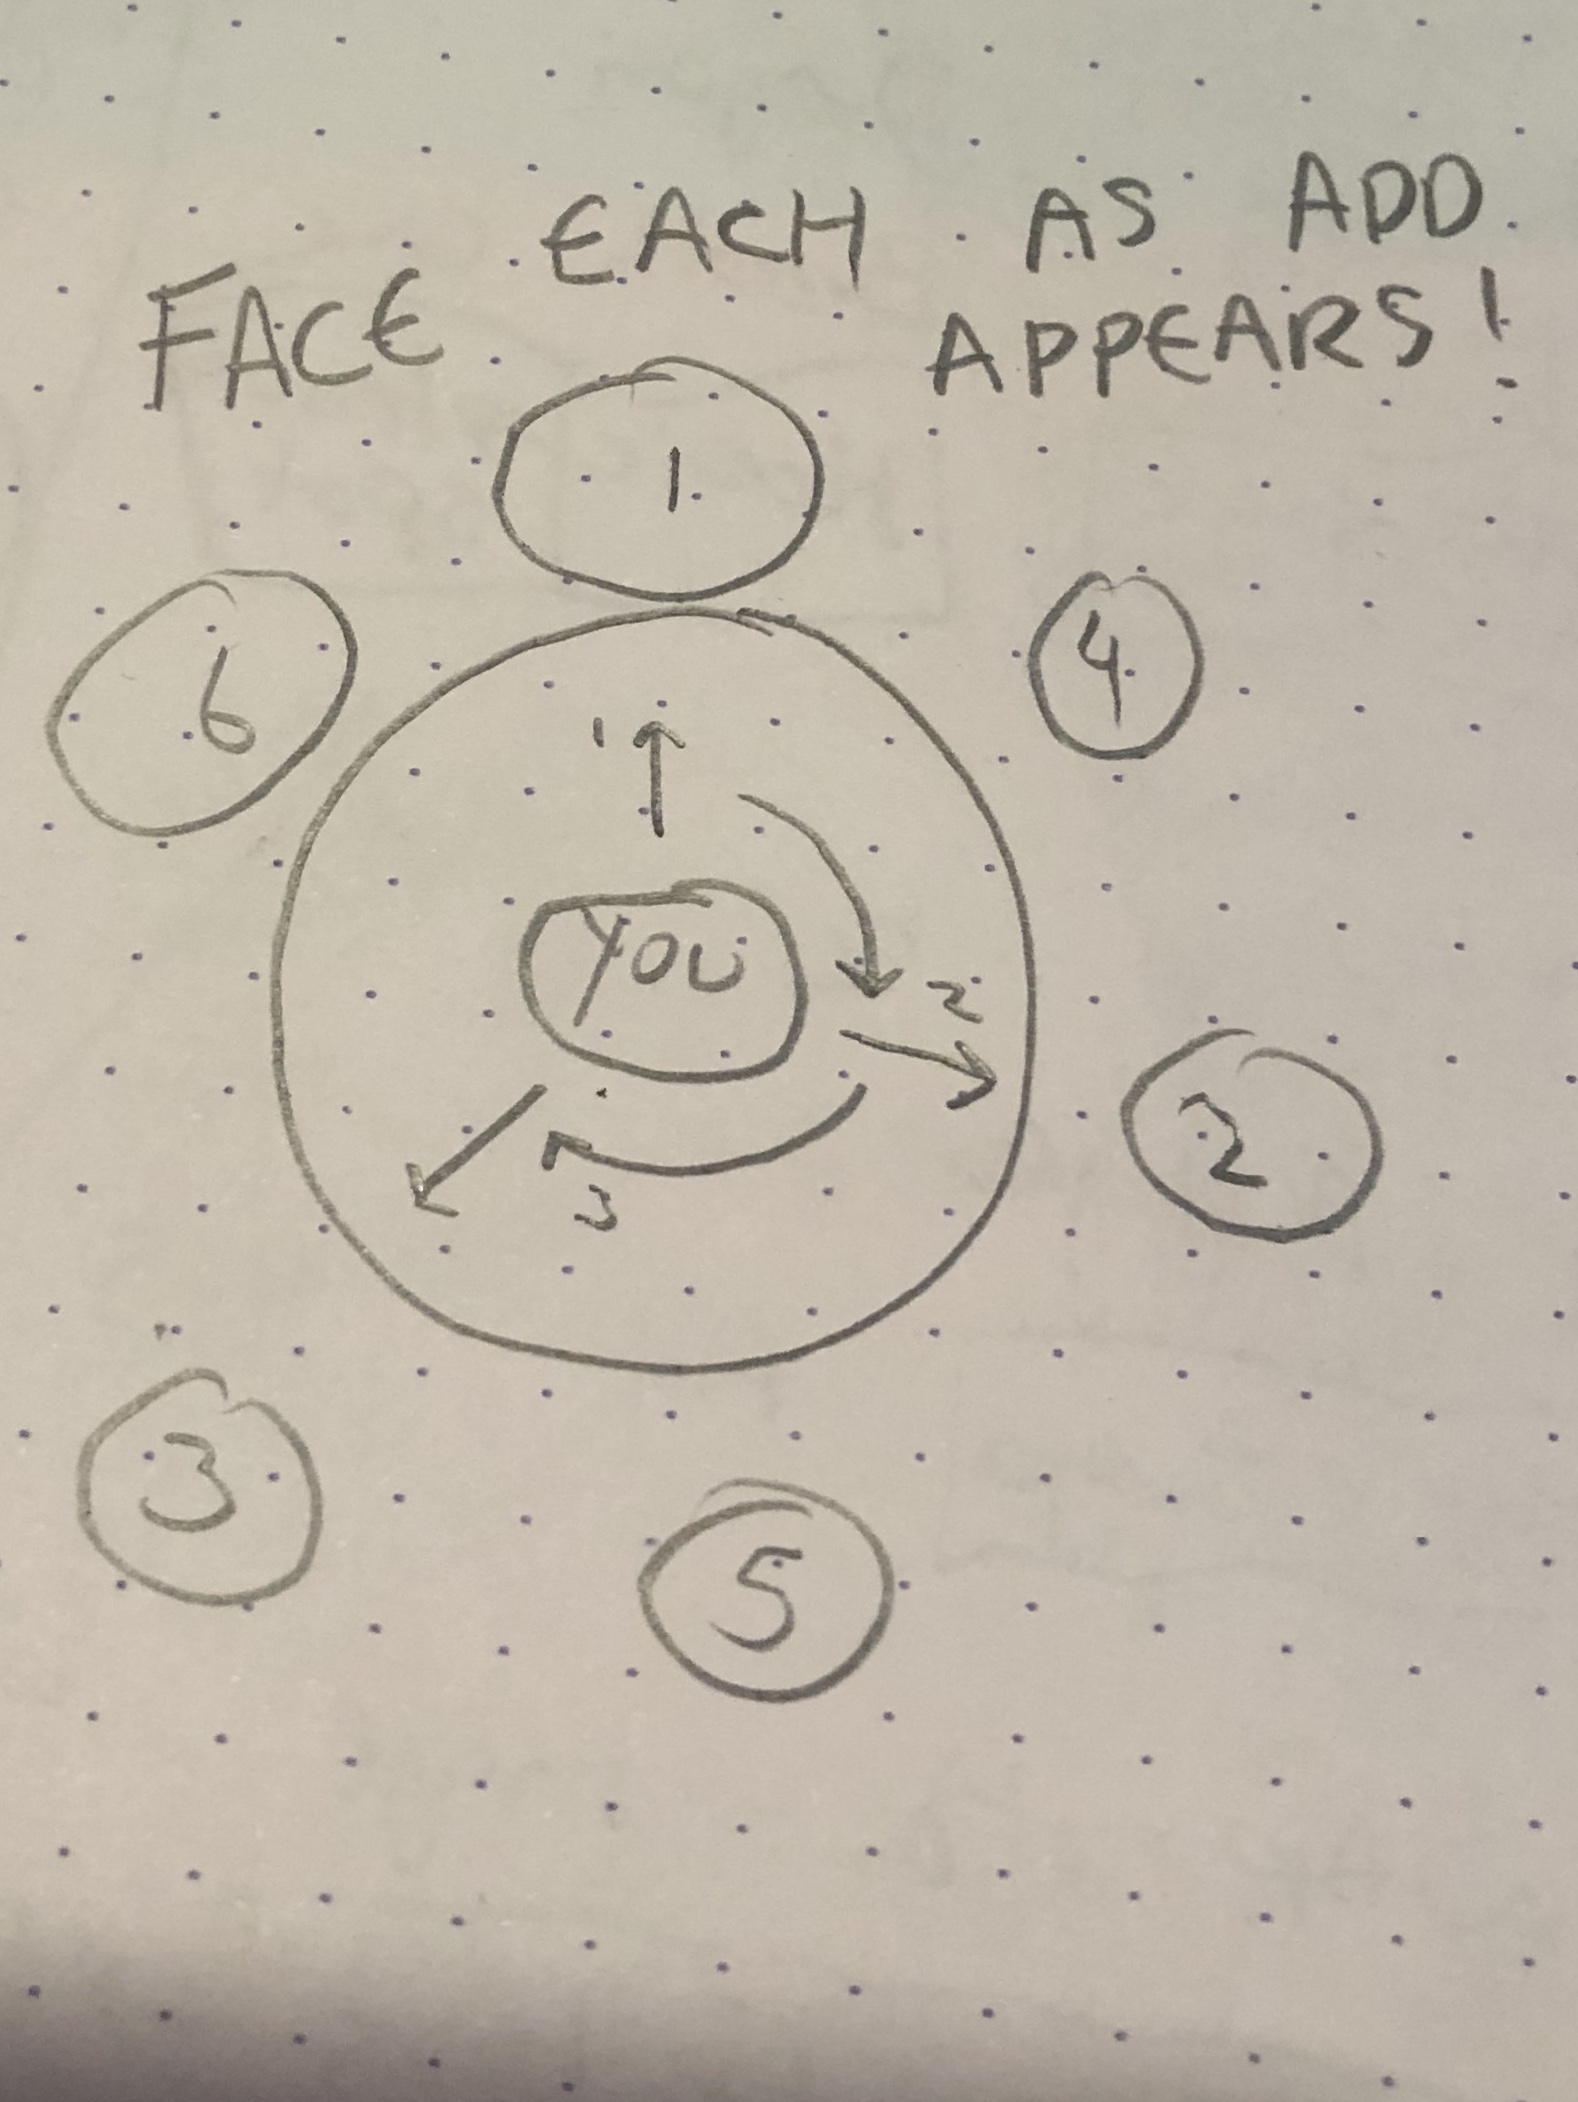 FACE EACH AS ADD
APPEARS!
1
6
4
1
YOU
2
2
3
3
5